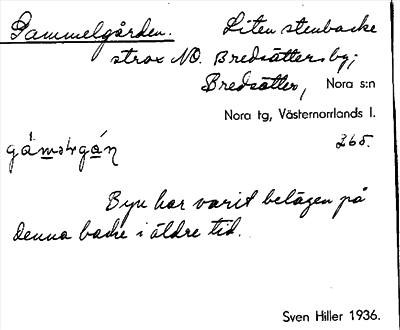 Gammelgården. Liten stenbacke
strax NO. Bredsätters by;
Bredsätter, Nora s:n
Nora tg, Västernorrlands l.
265.
Byn har varit belägen på
denna backe i äldre tid.
Sven Hiller 1936.